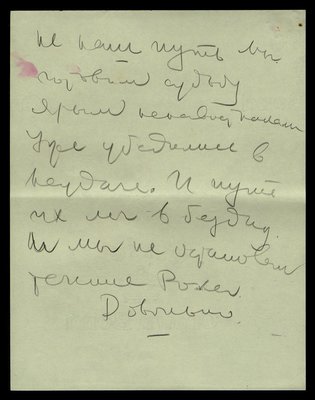 не наш путь мы
готовим судьбу
ярым ненавистникам
Уже убедились в
неудаче. И путь
их лег в бездну.
Но мы не остановим
течение Рока.
Довольно.